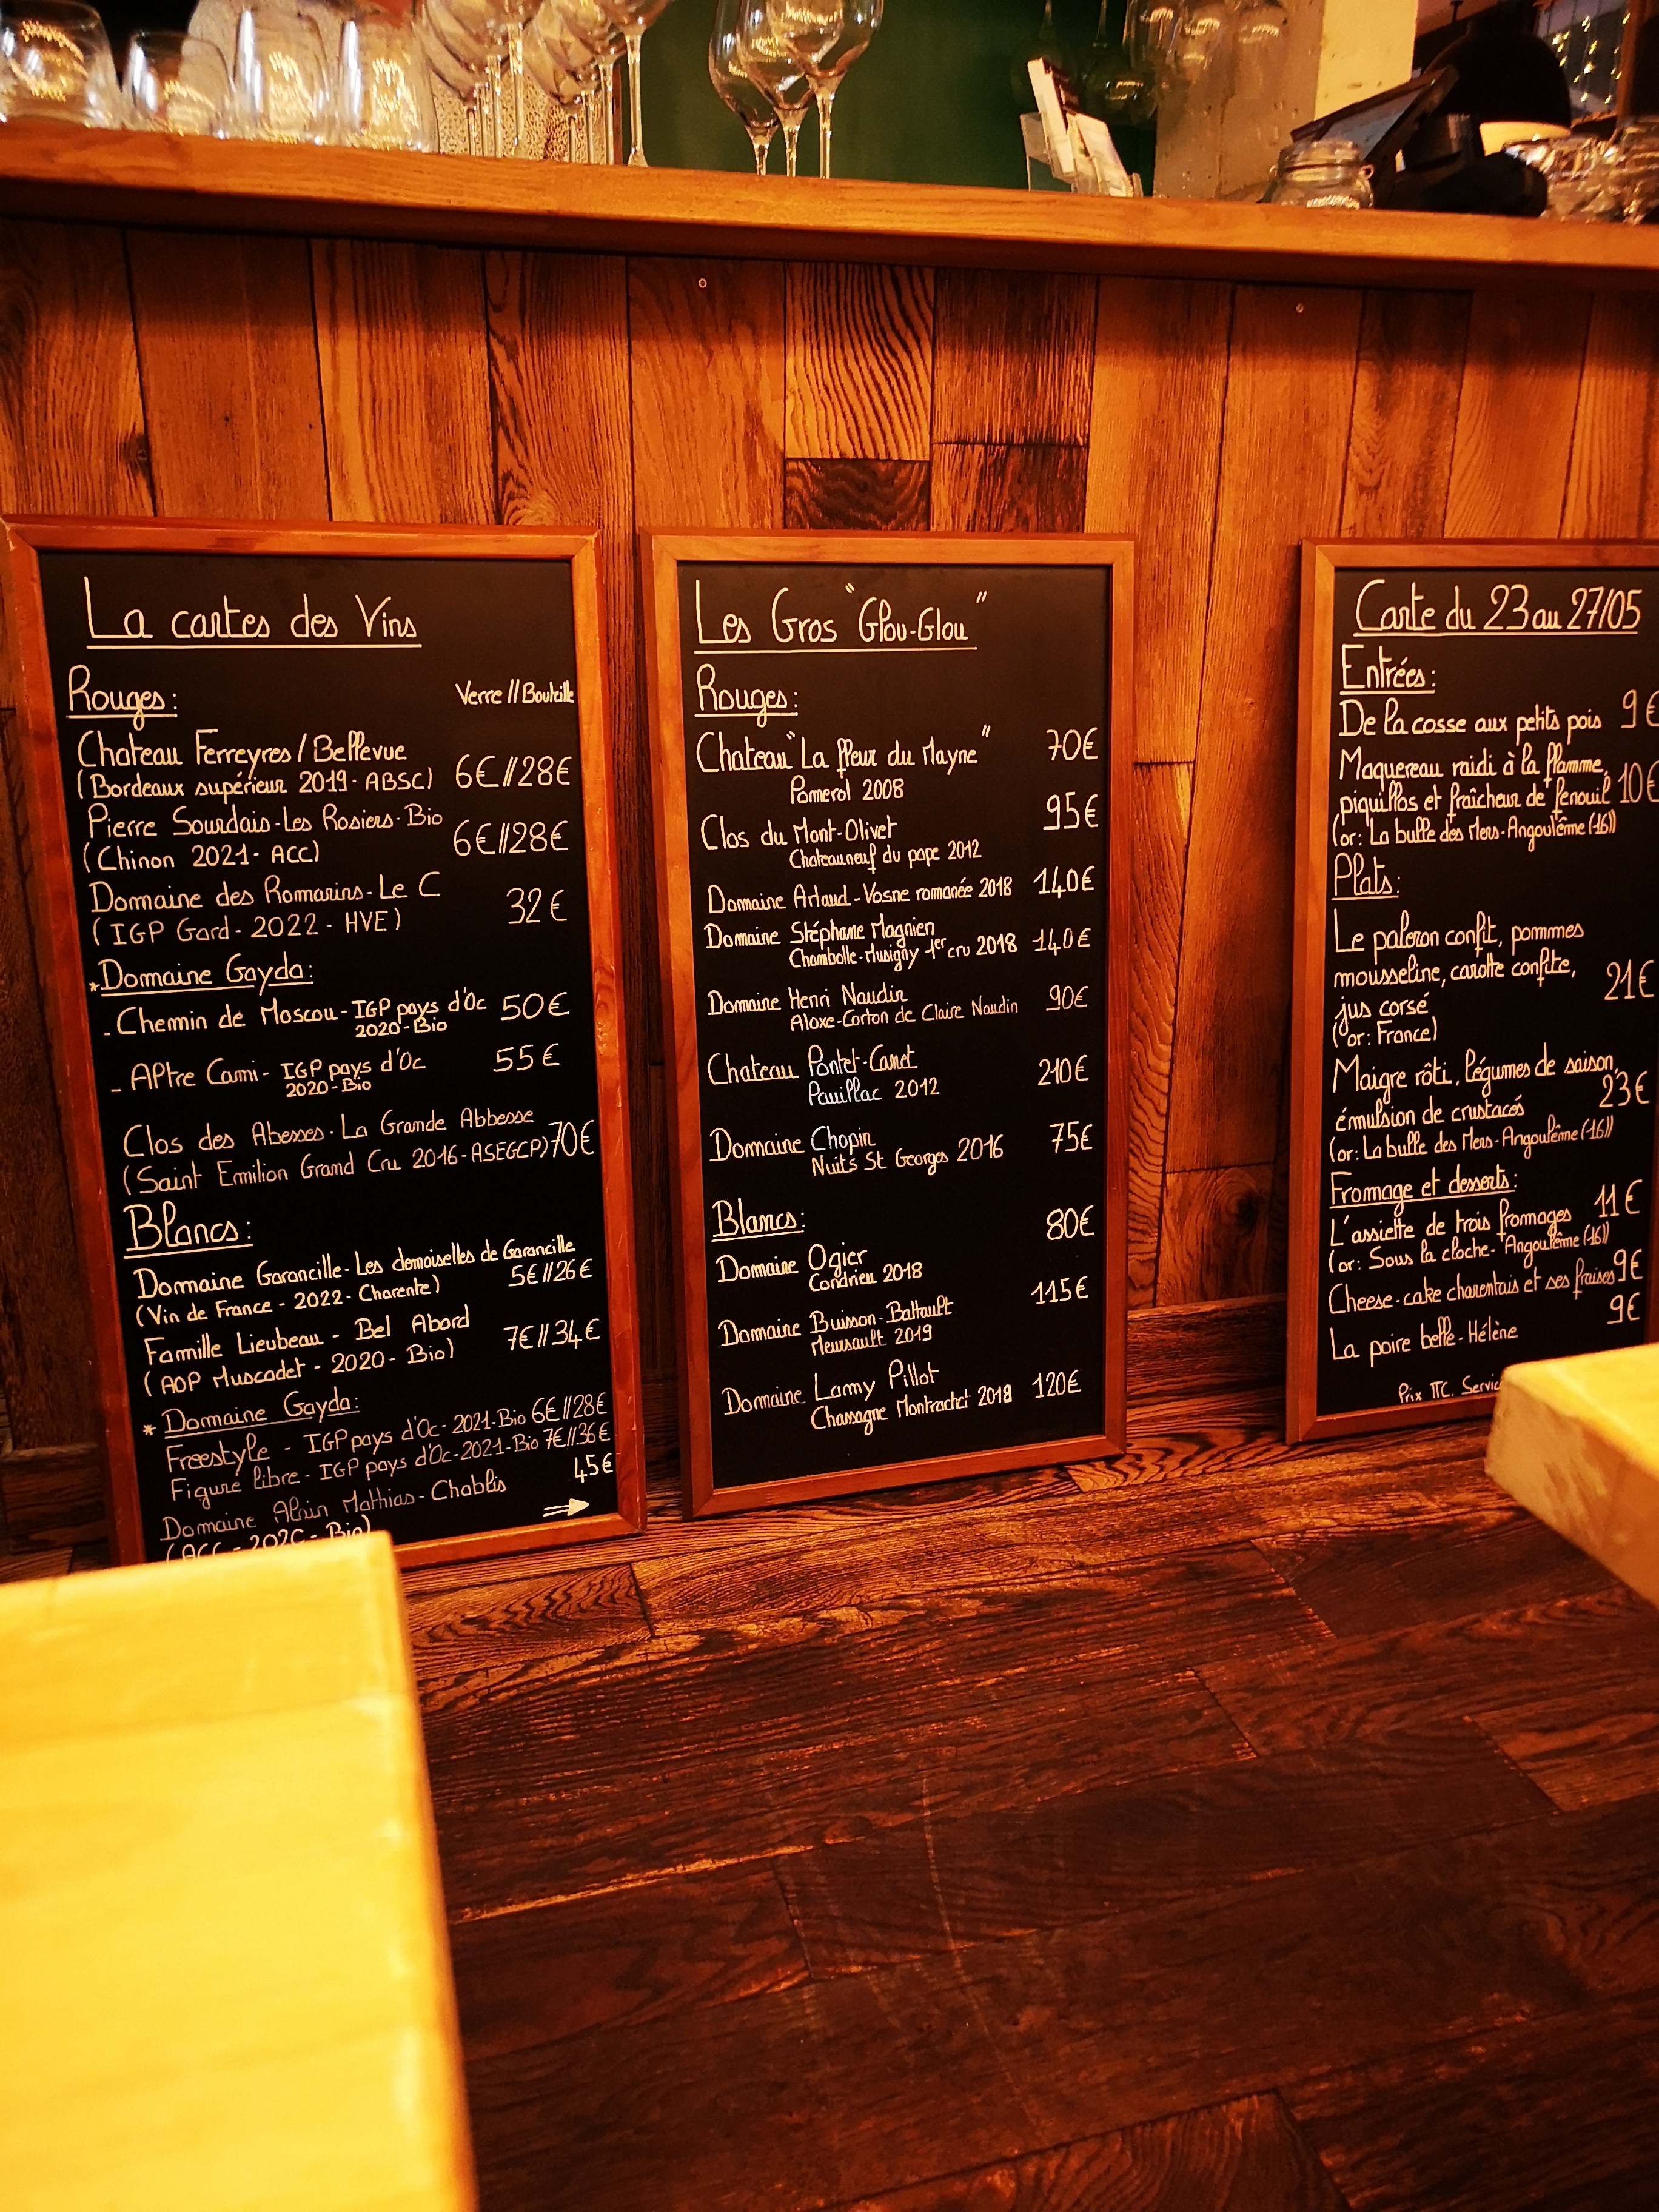 La cartes des Vins
Rouges: Verre // Bouteille
Chateau Ferreyres / Bellevue
(Bordeaux supérieur 2019 - ABSC) 6€//28€
Pierre Sourdais - Les Rosiers - Bio
(Chinon 2021 - ACC) 6€//28€
Domaine des Romarins - Le C
(IGP Gard - 2022 - HVE) 32€
*Domaine Gayda:
- Chemin de Moscou - IGP pays d'Oc 50€
2020 - Bio
- Altre Cami - IGP pays d'Oc 55€
2020 - Bio
Clos des Abesses - La Grande Abbesse
(Saint Emilion Grand Cru 2016 - ASEGCP) 70€
Blancs:
Domaine Garancille - Les demoiselles de Garancille
(Vin de France - 2022 - Charente) 5€//26€
Famille Lieubeau - Bel Abord
(AOP Muscadet - 2020 - Bio) 7€//34€
* Domaine Gayda:
Freestyle - IGP pays d'Oc - 2021 - Bio 6€//28€
Figure libre - IGP pays d'Oc - 2021 - Bio 7€//36€
Domaine Alain Mathias - Chablis 45€
(ACC - 2020 - Bio)
Les Gros "Glou-Glou"
Rouges:
Chateau "La fleur du Mayne" 70€
Pomerol 2008
Clos du Mont-Olivet 95€
Chateauneuf du pape 2012
Domaine Arlaud - Vosne romanée 2018 140€
Domaine Stéphane Magnien
Chambolle-Musigny 1er cru 2018 140€
Domaine Henri Naudin 90€
Aloxe-Corton de Claire Naudin
Chateau Pontet-Canet 210€
Pauillac 2012
Domaine Chopin 75€
Nuits St Georges 2016
Blancs:
Domaine Ogier 80€
Condrieu 2018
Domaine Buisson-Battault 115€
Meursault 2019
Domaine Lamy Pillot 120€
Chassagne Montrachet 2018
Carte du 23 au 27/05
Entrées:
De la cosse aux petits pois 9€
Maquereau raidi à la flamme,
piquillos et fraîcheur de fenouil 10€
(or: La bulle des Mers - Angoulême (16))
Plats:
Le paleron confit, pommes
mousseline, carotte confite,
jus corsé 21€
(or: France)
Maigre rôti, légumes de saison,
émulsion de crustacés 23€
(or: La bulle des Mers - Angoulême (16))
Fromage et desserts:
L'assiette de trois fromages 11€
(or: Sous la cloche - Angoulême (16))
Cheese-cake charentais et ses fraises 9€
La poire belle-Hélène 9€
Prix TTC. Servic